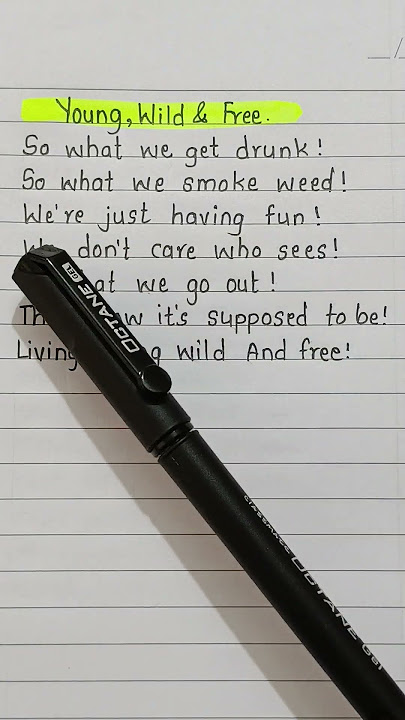 Young, Wild & Free.
So what we get drunk!
So what we smoke weed!
We're just having fun!
don't care who sees!
we go out!
it's supposed to be!
Living wild And free!
OCTANE GEL
CLASSMATE OCTANE GEL